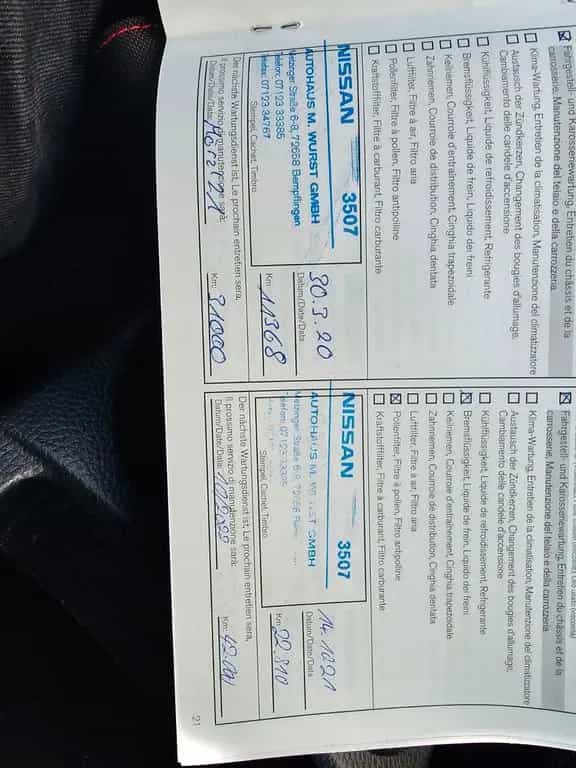 ☒ Fahrgestell- und Karosseriewartung, Entretien du châssis et de la
carrosserie, Manutenzione del telaio e della carrozzeria
☐ Klima-Wartung, Entretien de la climatisation, Manutenzione del climatizzatore
☐ Austausch der Zündkerzen, Changement des bougies d'allumage,
Cambiamento delle candele d'accensione
☐ Kühlflüssigkeit, Liquide de refroidissement, Refrigerante
☐ Bremsflüssigkeit, Liquide de frein, Liquido dei freini
☐ Keilriemen, Courroie d'entraînement, Cinghia trapezoidale
☐ Zahnriemen, Courroie de distribution, Cinghia dentata
☐ Luftfilter, Filtre à air, Filtro aria
☐ Pollenfilter, Filtre à pollen, Filtro antipolline
☐ Kraftstofffilter, Filtre à carburant, Filtro carburante
NISSAN 3507
AUTOHAUS M. WURST GMBH
Metzinger Straße 6-9, 72658 Bempflingen
Telefon: 07123 33385
Telefax: 07123 34767
Stempel, Cachet, Timbro
30.3.20
Datum/Date/Data
Km: 11368
Der nächste Wartungsdienst ist, Le prochain entretien sera,
Il prossimo servizio di manutenzione sarà:
Datum/Date/Data:
Km: 31000
☒ Fahrgestell- und Karosseriewartung, Entretien du châssis et de la
carrosserie, Manutenzione del telaio e della carrozzeria
☐ Klima-Wartung, Entretien de la climatisation, Manutenzione del climatizzatore
☐ Austausch der Zündkerzen, Changement des bougies d'allumage,
Cambiamento delle candele d'accensione
☐ Kühlflüssigkeit, Liquide de refroidissement, Refrigerante
☒ Bremsflüssigkeit, Liquide de frein, Liquido dei freini
☐ Keilriemen, Courroie d'entraînement, Cinghia trapezoidale
☐ Zahnriemen, Courroie de distribution, Cinghia dentata
☐ Luftfilter, Filtre à air, Filtro aria
☒ Pollenfilter, Filtre à pollen, Filtro antipolline
☐ Kraftstofffilter, Filtre à carburant, Filtro carburante
NISSAN 3507
AUTOHAUS M. WURST GMBH
Metzinger Straße 6-9, 72658
Telefon: 07123 33385
Stempel, Cachet, Timbro
14.10.21
Datum/Date/Data
Km: 22.810
Der nächste Wartungsdienst ist, Le prochain entretien sera,
Il prossimo servizio di manutenzione sarà:
Datum/Date/Data:
Km:
21